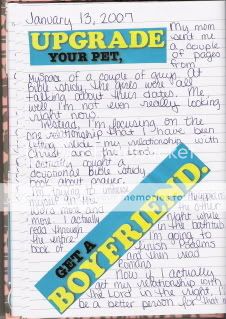 January 13, 2007
My mom
sent me
a couple
of pages
from
UPGRADE
YOUR PET,
myspace of a couple of guys. At
Bible study the girls were all
talking about their dates. Me
well, I'm not even really looking
right now.
Instead, I'm focusing on the
one relationship that I have been
letting slide: my relationship with
Christ and the Lord.
I actually bought a
devotional Bible study
book about prayer.
I'm trying to immerse
myself in the
word more and
more. I actually
read through
the entire
book of
night while
in the bathtub
I'm going to
finish Psalms
and then read
Romans.
GET A
BOYFRIEND.
Now if I actually
get my relationship with
the Lord in the right, I'll
be a better person for that